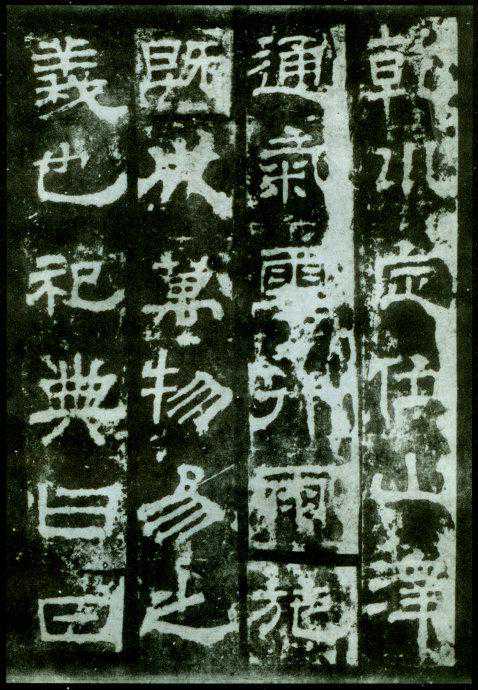 乾巛定位山澤
通氣雲行雨施
既成萬物易之
義也祀典曰日